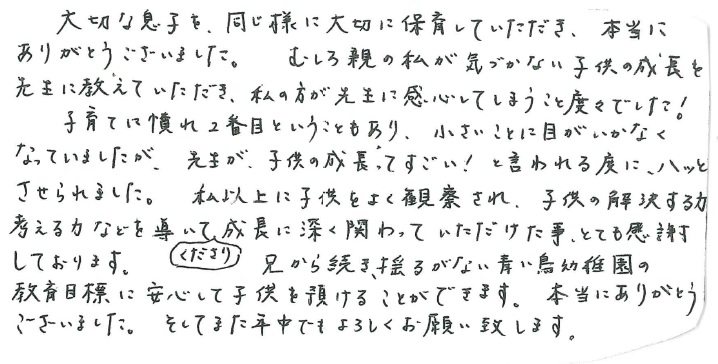 大切な息子を、同じ様に大切に保育していただき、本当に
ありがとうございました。 むしろ親の私が気づかない子供の成長を
先生に教えていただき、私の方が先生に感心してしまうこと度々でした！
子育てに慣れ2番目ということもあり、小さいことに目がいかなく
なっていましたが、先生が、子供の成長ってすごい！と言われる度に、ハッと
させられました。 私以上に子供をよく観察され、子供の解決する力
考える力などを導いて成長に深く関わっていただけた事、とても感謝
くださり
しております。 兄から続き、揺るがない青い鳥幼稚園の
教育目標に安心して子供を預けることができます。本当にありがとう
ございました。そしてまた年中でもよろしくお願い致します。